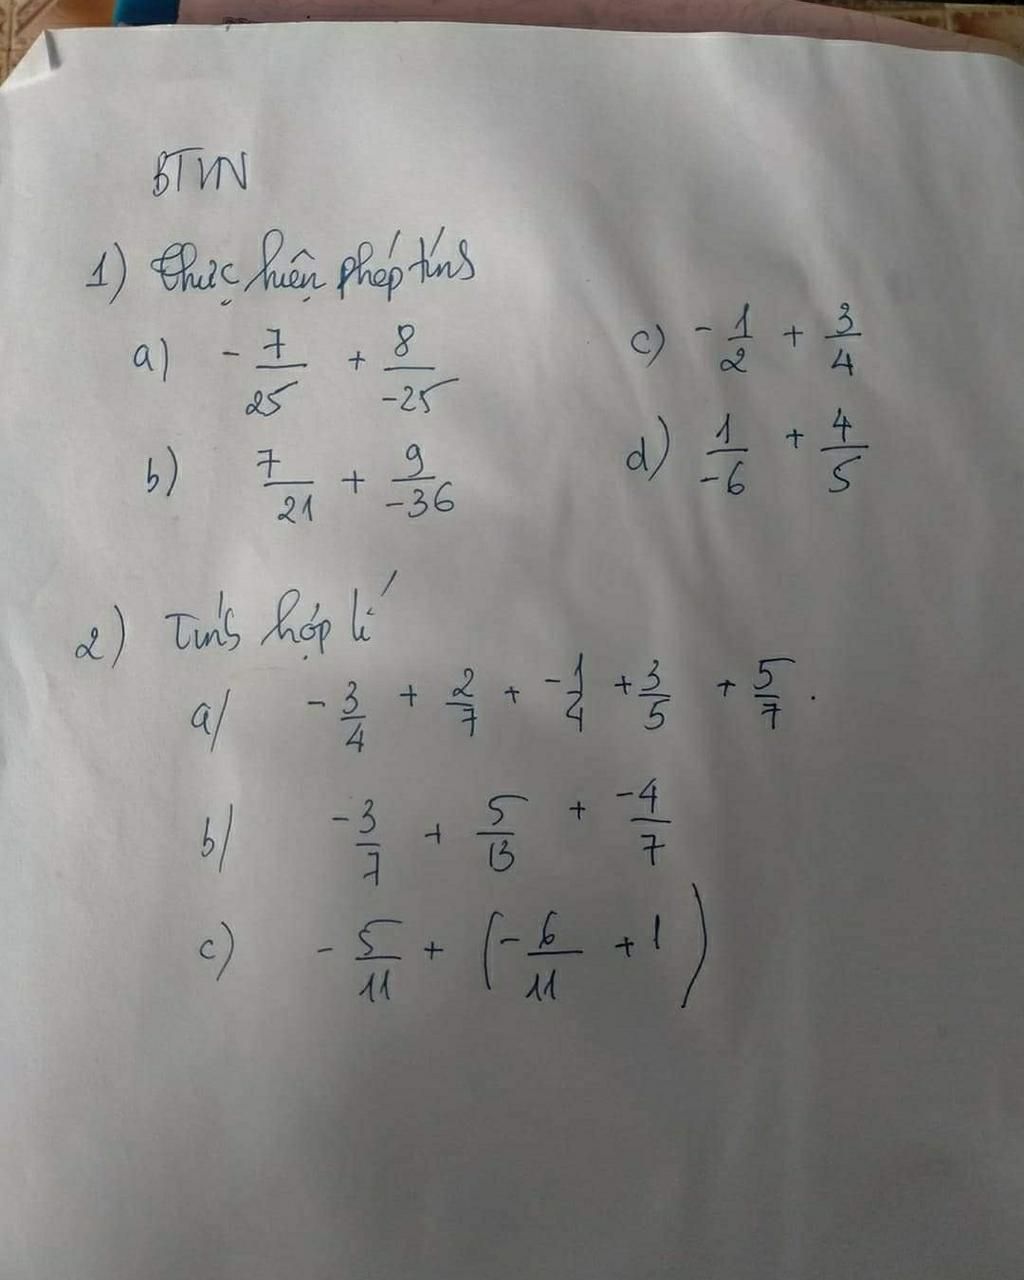 BTVN
1) Thực hiện phép tính
a) - 7/25 + 8/-25
b) 7/21 + 9/-36
c) - 1/2 + 3/4
d) 1/-6 + 4/5
2) Tính hợp lí
a/ - 3/4 + 2/7 + -1/4 + 3/5 + 5/7.
b/ -3/7 + 5/13 + -4/7
c) - 5/11 + (- 6/11 + 1)